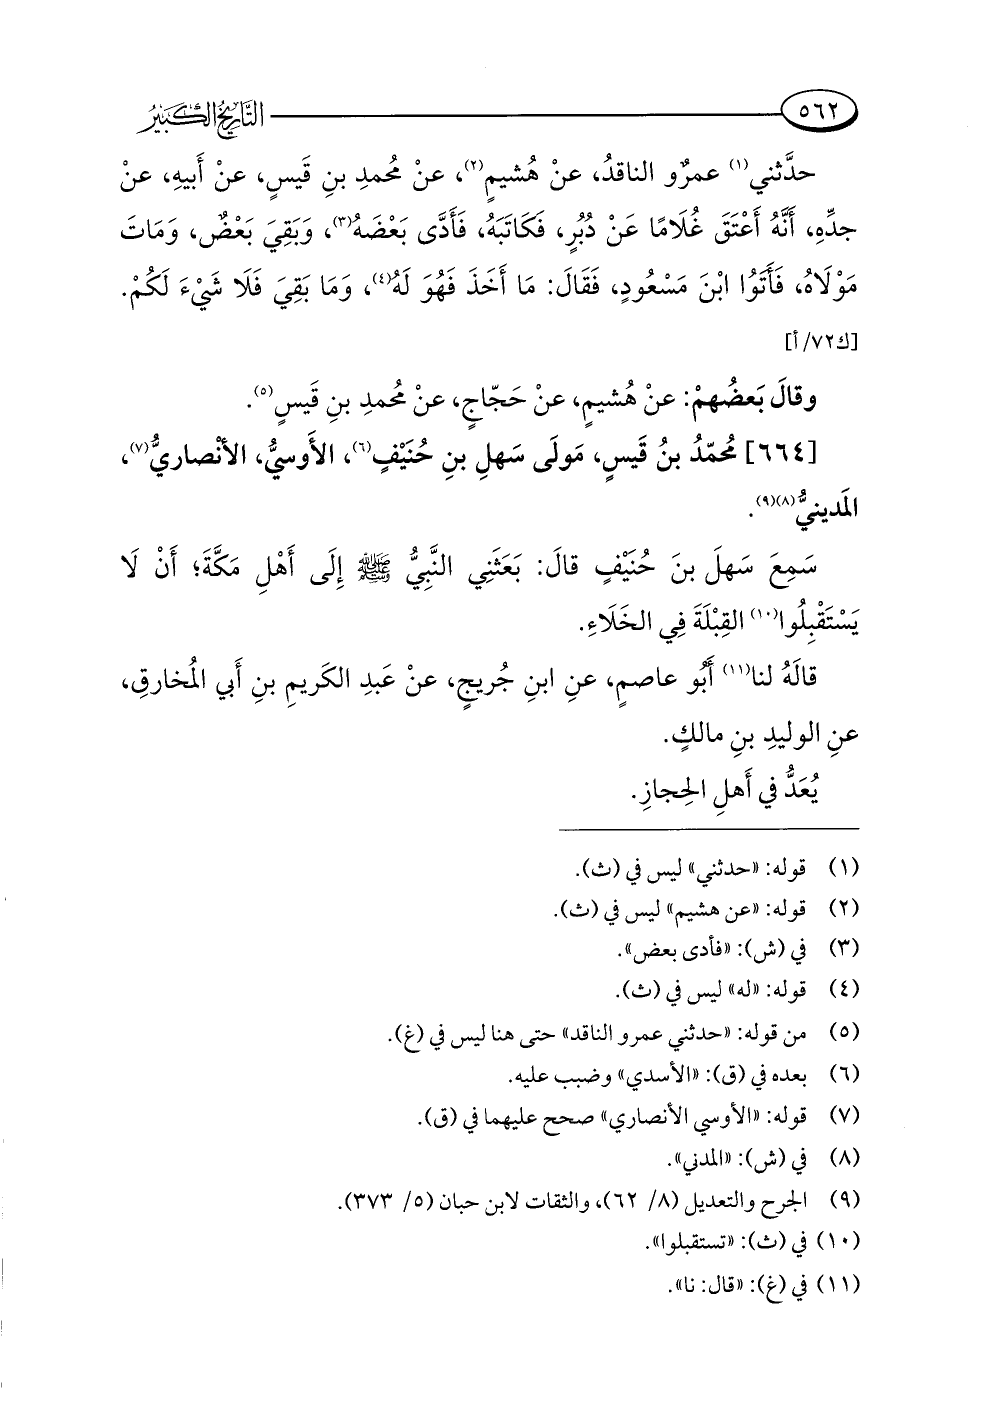 ٥٦٢ التَّارِيخُ الكَبِيرُ
حدَّثني(١) عمرٌو الناقدُ، عنْ هُشيمٍ(٢)، عنْ مُحمدِ بنِ قَيسٍ، عنْ أَبيهِ، عنْ
جدِّهِ، أَنَّهُ أَعْتَقَ غُلَامًا عَنْ دُبُرٍ، فَكَاتَبَهُ، فَأَدَّى بَعْضَهُ(٣)، وَبَقِيَ بَعْضٌ، وَمَاتَ
مَوْلَاهُ، فَأَتَوُا ابْنَ مَسْعُودٍ، فَقَالَ: مَا أَخَذَ فَهُوَ لَهُ(٤)، وَمَا بَقِيَ فَلَا شَيْءَ لَكُمْ.
[ك٧٢/ أ]
وقالَ بَعضُهمْ: عنْ هُشيمٍ، عنْ حَجّاجٍ، عنْ مُحمدِ بنِ قَيسٍ(٥).
[٦٦٤] مُحمّدُ بنُ قَيسٍ، مَولَى سَهلِ بنِ حُنَيْفٍ(٦)، الأَوسيُّ، الأنْصاريُّ(٧)،
المَدينيُّ(٨)(٩).
سَمِعَ سَهلَ بنَ حُنَيْفٍ قالَ: بَعَثَنِي النَّبِيُّ ﷺ إِلَى أَهْلِ مَكَّةَ؛ أَنْ لَا
يَسْتَقْبِلُوا(١٠) القِبْلَةَ فِي الخَلَاءِ.
قالَهُ لنا(١١) أَبُو عاصمٍ، عنِ ابنِ جُريجٍ، عنْ عَبدِ الكَريمِ بنِ أَبي المُخارقِ،
عنِ الوليدِ بنِ مالكٍ.
يُعَدُّ في أَهلِ الحِجازِ.
(١) قوله: «حدثني» ليس في (ث).
(٢) قوله: «عن هشيم» ليس في (ث).
(٣) في (ش): «فأدى بعض».
(٤) قوله: «له» ليس في (ث).
(٥) من قوله: «حدثني عمرو الناقد» حتى هنا ليس في (غ).
(٦) بعده في (ق): «الأسدي» وضبب عليه.
(٧) قوله: «الأوسي الأنصاري» صحح عليهما في (ق).
(٨) في (ش): «المدني».
(٩) الجرح والتعديل (٨/ ٦٢)، والثقات لابن حبان (٥/ ٣٧٣).
(١٠) في (ث): «تستقبلوا».
(١١) في (غ): «قال: نا».